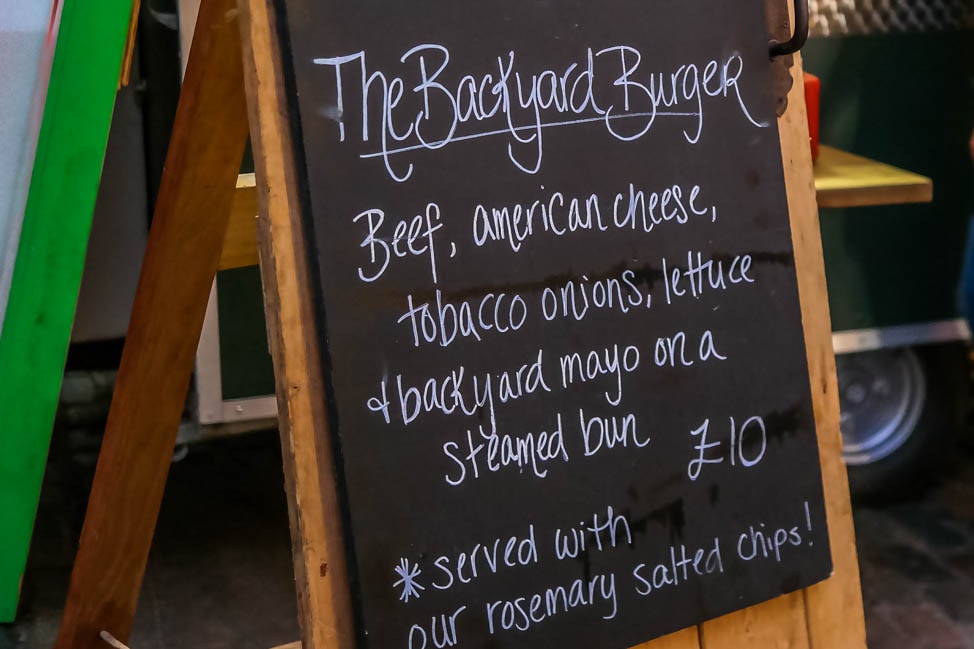 The Backyard Burger
Beef, american cheese,
tobacco onions, lettuce
& backyard mayo on a
steamed bun £10
*served with
our rosemary salted chips!